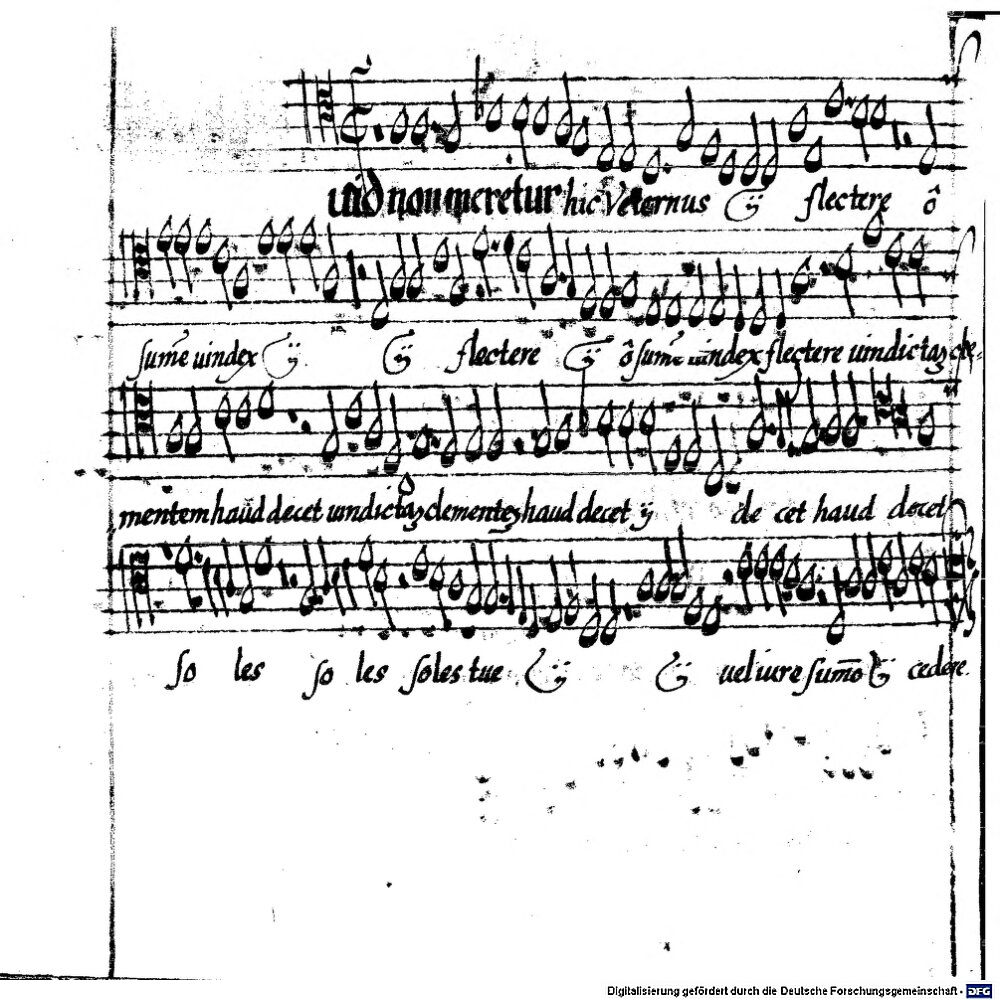 uid non meretur hic Veternus ij flectere ô
sum̄e uindex ij ij flectere ij ô sum̄e uindex flectere uindictaȝ cle-
mentem haud decet uindictaȝ clementeȝ haud decet ij de cet haud decet
so les so les soles tue ij ij uel iure sum̄o ij cedere.
Digitalisierung gefördert durch die Deutsche Forschungsgemeinschaft - DFG